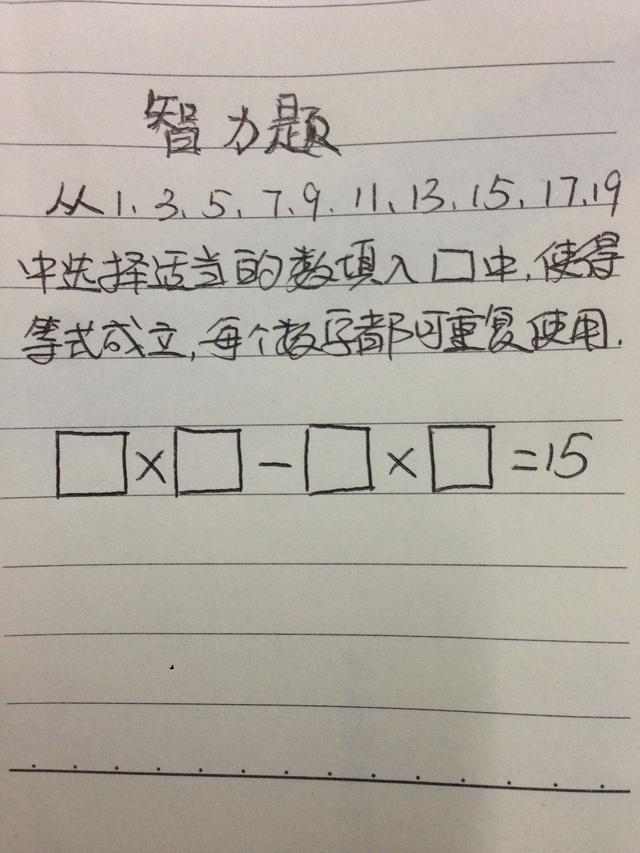 智力题
从1、3、5、7、9、11、13、15、17、19
中选择适当的数填入□中,使得
等式成立,每个数字都可重复使用.
□×□-□×□=15